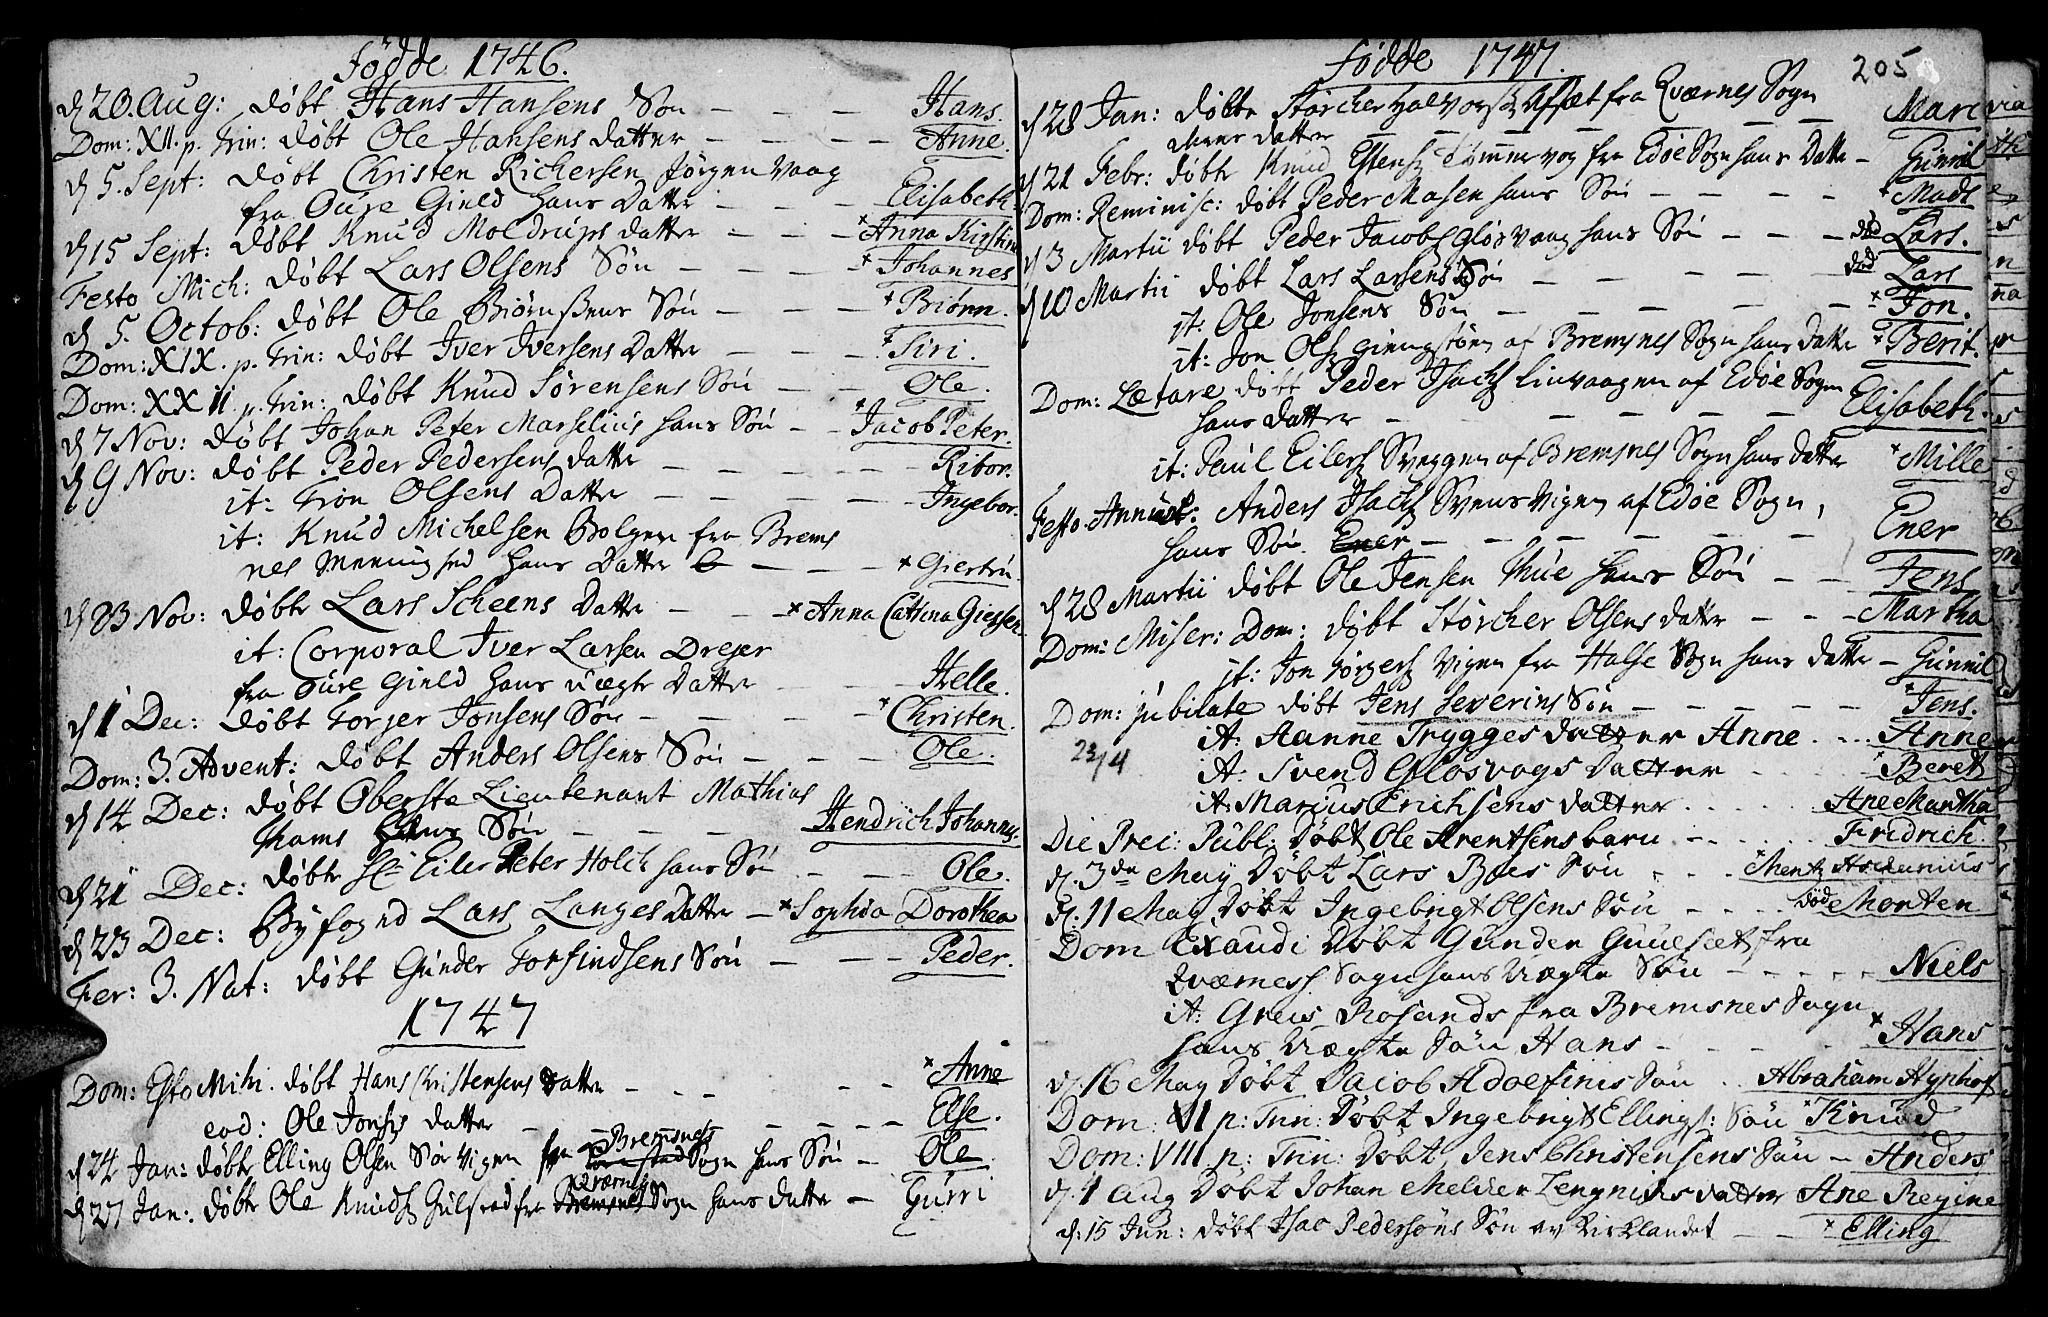 Fødde 1746.
d 20. Aug: døbt Hans Hansens Søn — — — Hans.
Dom: XII. p. Trin: døbt Ole Hansens datter — — — Anne.
d 5. Sept: døbt Christen Richersen Jørgenvaag
fra Oure Gield hans Datter — — — Elisabeth
d 15 Sept: døbt Knud Moldrups datter — — — × Anna Kirstina
Festo Mich: døbt Lars Olsens Søn — — — × Johannes
d 5. Octob: døbt Ole Biørnsens Søn — — — × Biørn.
Dom: XIX. p. Trin: døbt Iver Iversens Datter — — — × Siri.
Dom: XXII. p. Trin: døbt Knud Sørensens Søn — — Ole.
d 7 Nov: døbt Johan Peter Marselius hans Søn — — × Jacob Peter.
d 9 Nov: døbt Peder Pedersens datter — — — — Ribor.
it: Tron Olsens Datter — — — — Ingebor.
it: Knud Michelsen Bolgen fra Brems
nes Meenighed hans Datter — — — × Giertru
d 23 Nov: døbt Lars Scheens datter — — — × Anna Cattrina Giessen
it: Corporal Iver Larsen Drejer
fra Oure Gield hans uægte Datter — — — Helle.
d 1 Dec: døbt Torger Jonsens Søn — — — — × Christen.
Dom: 3. Advent: døbt Anders Olsens Søn — — — — Ole.
d 14 Dec: døbt Oberste Lieutenant Mathias
Thams Søn — — — — Hendrich Johannes.
d 21 Dec: døbt Sl Eiler Peter Holck hans Søn — — — Ole.
d 23 Dec: Byfogd Lars Langes datter — × Sophia Dorothea
Fer: 3. Nat: døbt Gunder Torfindsens Søn — — — Peder.
1747
Dom: Esto Mihi. døbt Hans Christensens datter — — — — × Anne
eod: Ole Jonsens datter — — — — Else.
Bremsness
d 24 Jan: døbt Elling Olsen Sør Vigen fra Sogn hans Søn — Ole
Qværnes
d 27 Jan: døbt Ole Knuds Gulsted fra Bremsnes Sogn hans datter — Gurri
Fødde 1747.
205
d 28 Jan: døbt Storcher Halvors fra Qværnes Sogn
datter — — — — Mari
d 21 Febr: døbt Knud Estens Tømmervog fra Edøe Sogn hans Datter — Gunnil
Dom: Reminisc: døbt Peder Masen hans Søn — — — — × Mads
d 3 Martii døbt Peder Jacobs Gløsvaag hans Søn — — — død Lars.
d 10 Martii døbt Lars Larsens Søn — — — — død Lars
it: Ole Jonsens Søn — — — — × Jon.
it: Jon Ols Gimnstøen af Bremsnes Sogn hans datter × Berit.
Dom: Lætare døbt Peder Isachs Linvaagen af Edøe Sogn
hans datter — — — — Elisabeth.
it: Paul Eilers Sveggen af Bremsnes Sogn hans datter × Mille
Festo Annunt: Anders Isachs Svensvigen af Edøe Sogn,
hans Søn Ener — — — — Ener
d 28 Martii døbt Ole Jensen Thue hans Søn — — Jens
Dom: Miser: Dom: døbt Storcher Olsens datter — — — Martha
it: Jon Jørgens Vigen fra Halse Sogn hans datter — Gunnil
Dom: Jubilate døbt Jens Severins Søn — — — — × Jens.
it: Aanne Trygges datter Anne . . . Anne
23/4
it: Svend Glosvogs Datter . . . . × Beret
it: Marius Erichsens datter . . . . Ane Martha
Die Prec: Publ: døbt Ole Arentsens barn — . . . . Fridrich
d. 3de May døbt Lars Boes Søn . . . × Mentz
d. 11 May døbt Ingebrigt Olsens Søn . . . . død Morten
Dom Exaudi døbt Gunder Guulset fra
Qværness Sogn hans Uægte Søn — — — — Niels
it: Greis Røsands fra Bremsnes Sogn
hans Uægte Søn Hans — — — × Hans
d. 16 May døbt Jacob Adolfinis Søn . . Abraham Ayphof
Dom: VI p: Trin: døbt Ingebrigt Ellings: Søn × Knud
Dom: VIII p: Trin: døbt Jens Christensens Søn — Anders
d. 4 Aug døbt Johan Melchior Zengnichs datter Ane Regine
d: 15 Jun: døbt Isac Pedersøns Søn av Kirklandet — — × Elling